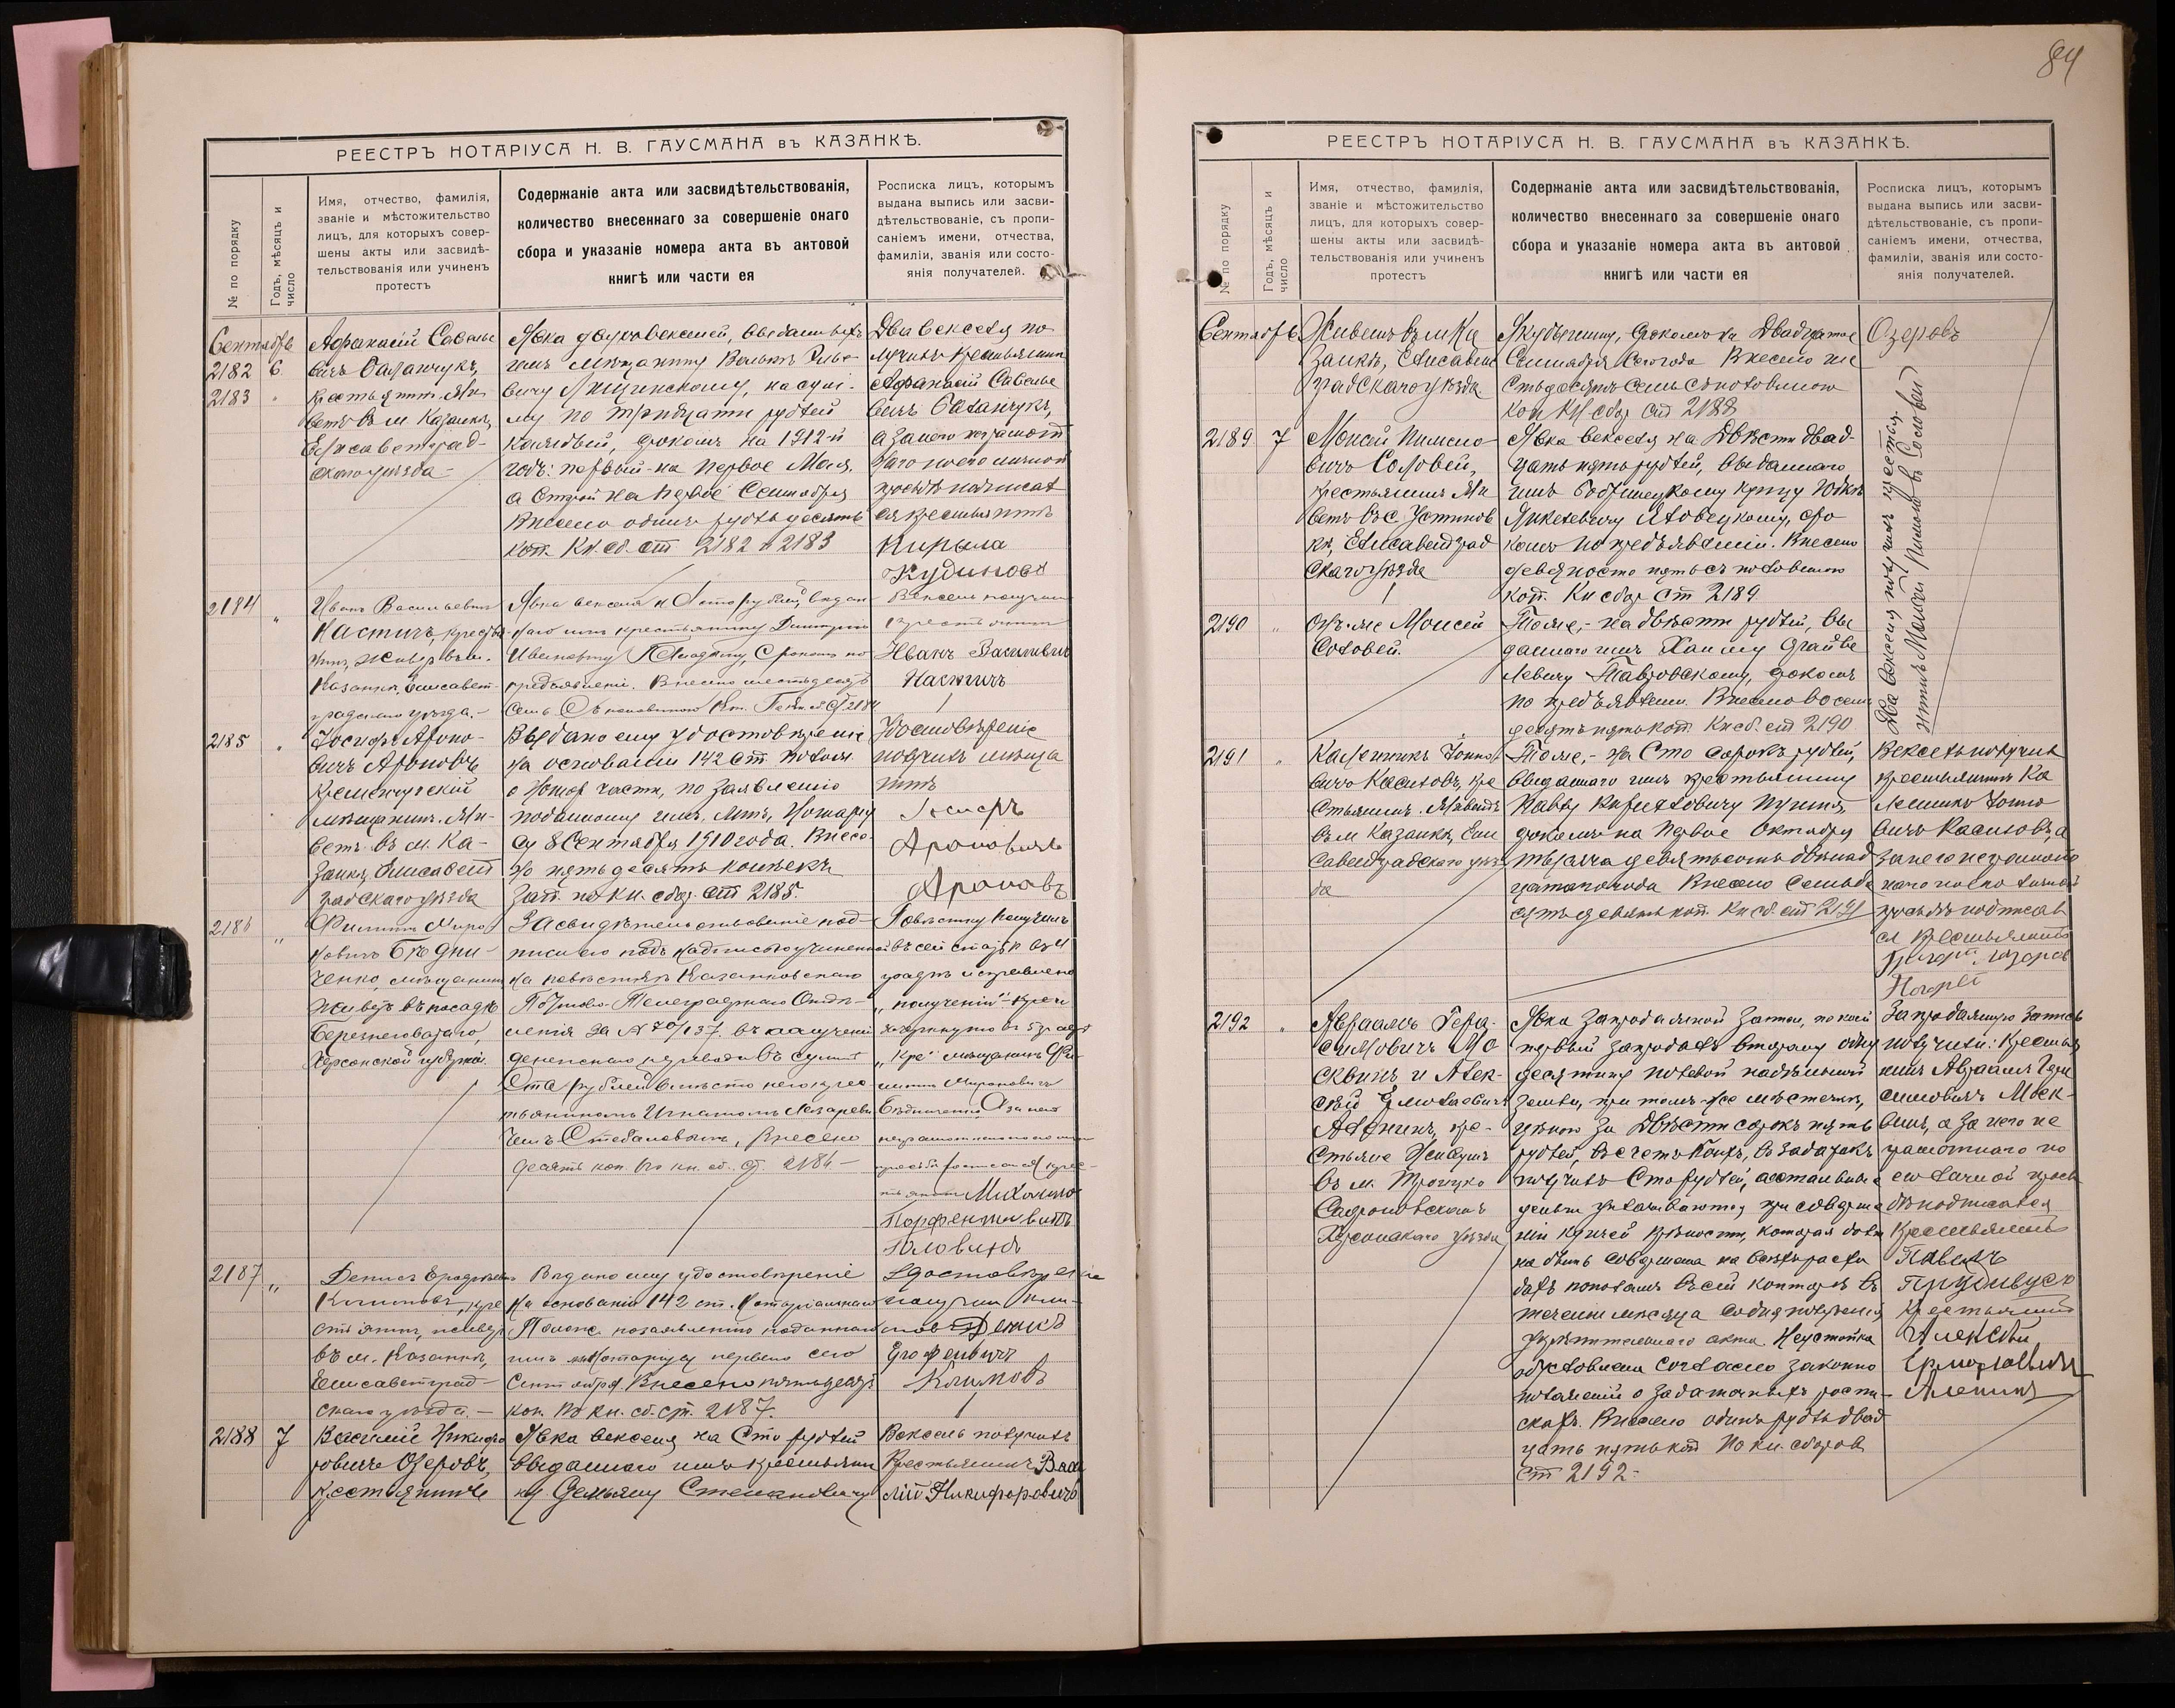 84
РЕЕСТРЪ НОТАРІУСА Н. В. ГАУСМАНА въ КАЗАНКѢ.
№ по порядку
Годъ, мѣсяцъ и число
Имя, отчество, фамилія,
званіе и мѣстожительство
лицъ, для которыхъ совер-
шены акты или засвидѣ-
тельствованія или учиненъ
протестъ
Содержаніе акта или засвидѣтельствованія,
количество внесеннаго за совершеніе онаго
сбора и указаніе номера акта въ актовой
книгѣ или части ея
Росписка лицъ, которымъ
выдана выпись или засви-
дѣтельствованіе, съ пропи-
саніемъ имени, отчества,
фамиліи, званія или состо-
янія получателей.
Сентябрь
2182 6
2183 "
Афанасій Савелье
вичъ
крестьянинъ, жи
ветъ въ м. Казанкѣ,
Елисаветград-
скаго уѣзда
Явка двухъ векселей, выданныхъ
имъ мѣщанину
вичу на сум-
му по тридцати рублей
каждый, срокомъ на 1912-й
годъ: первый на первое Мая,
а второй на первое Сентября
Внесено одинъ рубль десять
коп. Кн. сб. ст 2182 и 2183
Два векселя по
лучилъ крестьянинъ
Афанасій Савелье
вичъ
а за него неграмот
наго по его личной
просьбѣ подписал
ся крестьянинъ
Кирыла
Кудиновъ
2184 "
Иванъ Васильевичъ
Кастичъ, крестья
нинъ, живетъ въ м.
Казанкѣ, Елисавет-
градскаго уѣзда.-
Явка векселя на сто рублей, выдан
наго имъ крестьянину Дмитрію
Ивановичу срокомъ по
предъявленіи. Внесено шестьдесятъ
семь съ половиною коп. 2184
Вексель получилъ
крестьянинъ
Иванъ Васильевичъ
Кастичъ
2185 "
Іосифъ Ароно-
вичъ Ароновъ
Кременчугскій
мѣщанинъ. Жи-
ветъ въ м. Ка-
занкѣ, Елисавет
градскаго уѣзда
Выдано ему удостовѣреніе
на основаніи 142 ст. полож.
о нотар части, по заявленію
поданному имъ, мнѣ, Нотаріу
су 8 Сентября 1910 года. Внесе-
но пятьдесятъ копѣекъ
Зап. по кн. сбор. ст 2185.
Удостовѣреніе
получилъ мѣща
нинъ
Іосифъ
Ароновичъ
Ароновъ
2186 "
Филиппъ Миро
новичъ Бѣдни-
ченко, мѣщанинъ
живетъ въ посадѣ
Березнеговатаго,
Херсонской губерніи.
Засвидѣтельствованіе под-
писи его подъ надписью учиненной
на повѣсткѣ Казанковскаго
Почтово-Телеграфнаго Отдѣ-
ленія за № 70/137. въ полученіи
денежнаго перевода въ суммѣ
ста рублей вмѣсто него крес
тьяниномъ Игнатомъ Лазареви
чемъ Внесено
десять коп. По кн. сб. ст. 2186 -
Повѣстку получилъ
въ сей статьѣ въ 4
графѣ исправлено
„полученіи" -
зачеркнуто въ 5 графѣ
„Кре" мѣщанинъ Фи
липпъ Мироновичъ
Бѣдниченко А за него
неграмотнаго по его личн
просьбѣ росписался крес-
тьянинъ Михаило
Парфентиевичъ
Половинъ
2187 "
Денисъ Ерофѣевичъ
Климовъ, кре
стьянинъ, живетъ
въ м. Казанкѣ,
Елисаветград-
скаго уѣзда. -
Выдано ему удостовѣреніе
На основаніи 142 ст. Нотаріальнаго
Полож. по заявленію поданному
имъ мнѣ Нотаріусу перваго сего
Сентября. Внесено пятьдесятъ
коп. По кн. сб. ст. 2187.
Удостовѣреніе
получилъ кли-
мовъ Денисъ
Ерофеивичъ
Климовъ
2188 7
Василій Никифо
ровичъ Озеровъ,
крестьянинъ
Явка векселя на сто рублей
выданнаго имъ крестьяни
ну Демьяну Степановичу
Вексель получилъ
Крестьянинъ Васи
лій Никифоровичъ
РЕЕСТРЪ НОТАРІУСА Н. В. ГАУСМАНА въ КАЗАНКѢ.
№ по порядку
Годъ, мѣсяцъ и число
Имя, отчество, фамилія,
званіе и мѣстожительство
лицъ, для которыхъ совер-
шены акты или засвидѣ-
тельствованія или учиненъ
протестъ
Содержаніе акта или засвидѣтельствованія,
количество внесеннаго за совершеніе онаго
сбора и указаніе номера акта въ актовой
книгѣ или части ея
Росписка лицъ, которымъ
выдана выпись или засви-
дѣтельствованіе, съ пропи-
саніемъ имени, отчества,
фамиліи, званія или состо-
янія получателей.
Сентябрь
Живетъ въ м. Ка
занкѣ, Елисавет
градскаго уѣзда
срокомъ на двадцатое
Сентября сего года Внесено ше
стьдесятъ семь съ половиною
коп Кн сбор ст 2188
Озеровъ
2189 7
Моисей Пимено
вичъ Соловей,
крестьянинъ Жи
ветъ въ с. Устинов
кѣ, Елисаветград
скаго уѣзда
Явка векселя на двѣсти двад-
цать пять рублей, выданнаго
имъ Бобринецкому купцу
сро
комъ по предъявленіи. Внесено
девяносто пять съ половиною
коп. Кн сбор ст 2189
Два векселя получилъ крестья
нинъ Моисей Пименовъ Соловьей
2190 "
Онъ-же Моисей
Соловей.
Тоже,- на двѣсти рублей, вы
даннаго имъ Хаиму
левичу срокомъ
по предъявленіи Внесено восемь
десятъ пять коп. Кн сб. ст 2190
2191 "
Калинникъ
вичъ Касиловъ, кре
стьянинъ. Живетъ
въ м Казанкѣ, Ели
саветградскаго уѣз
да
Тоже,- на Сто сорокъ рублей,
выданнаго имъ крестьянину
Павлу Кирилловичу
срокомъ на первое Октября
тысяча девятьсотъ двѣнад
цатаго года Внесено семьде
сятъ девять коп. Кн сб. ст 2191
Вексель получилъ
крестьянинъ Ка
линникъ
вичъ Касиловъ, а
за него неграмот
наго по его личной
просьбѣ подписал
ся крестьянинъ
2192 "
Авраамъ Гера-
симовичъ Мо
сквинъ и Алек-
сѣй Ермолаевичъ
Аленинъ, кре-
стьяне Живущіе
въ м. Троицко
Сафоновскомъ
Херсонскаго уѣзда
Явка запродажной записи, по коей
первый запродалъ второму одну
десятину полевой надѣльной
земли, при томъ-же мѣстечкѣ,
цѣною за двѣсти сорокъ пять
рублей, въ счетъ коихъ, въ задатокъ
получилъ сто рублей, а остальныя
деньги уплачиваются при соверше
ніи купчей крѣпости, которая долж
на быть совершена на
въ сей конторѣ въ
теченіи мѣсяца со дня полученія
акта. Неустойка
обусловлена согласно законо
положеній о задаточныхъ роспи-
скахъ. Внесено одинъ рубль двад
цать пять коп По кн. сборов
ст 2192-
Запродажную запись
получили: крестья
нинъ Авраамъ Гера
симовичъ Моск-
винъ, а за него не
грамотнаго по
его личной прось
бѣ подписался
Крестьянинъ
Павелъ
Крестьянинъ
Алексѣй
Ермолаевичъ
Аленинъ